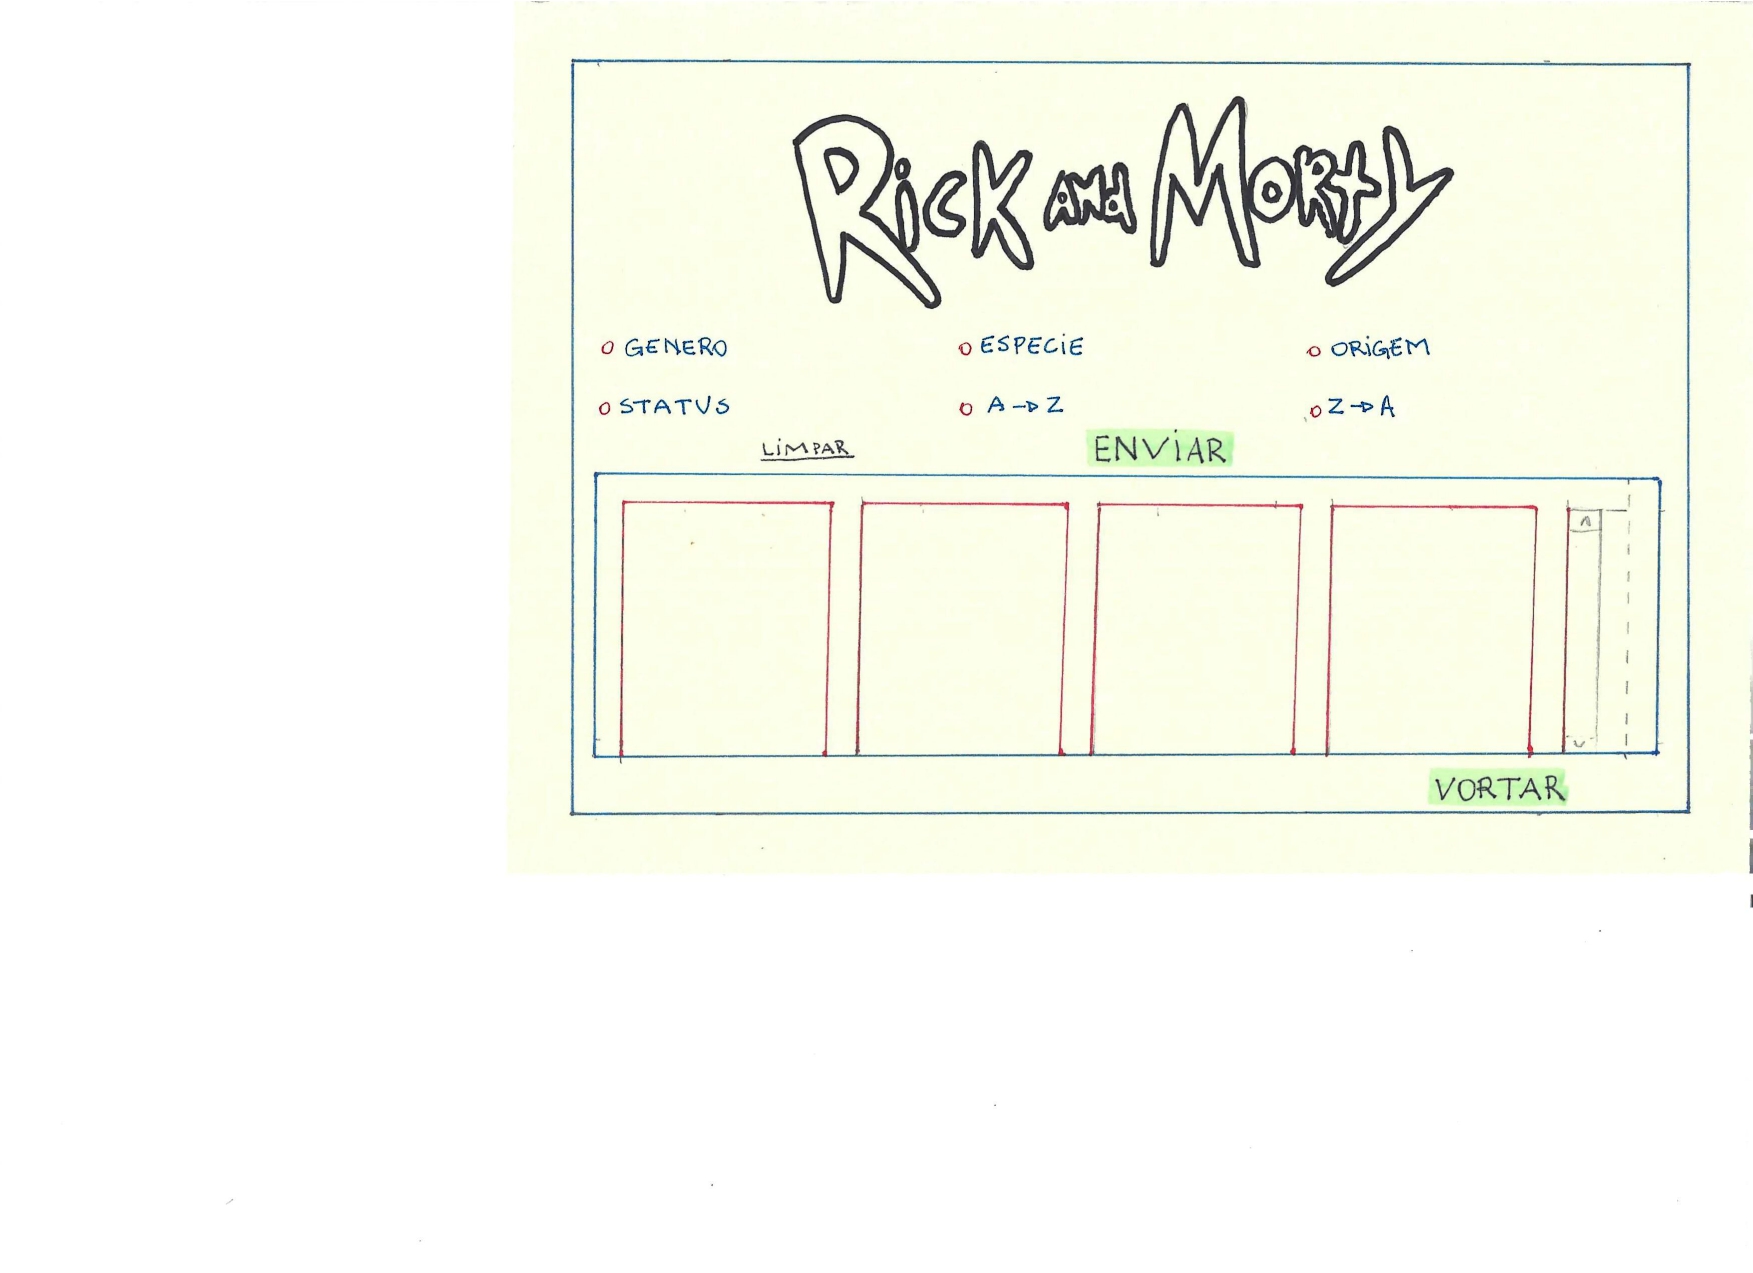 Rick and Morty
GENERO ESPECIE ORIGEM
STATUS A→Z Z→A
LIMPAR ENVIAR
VORTAR